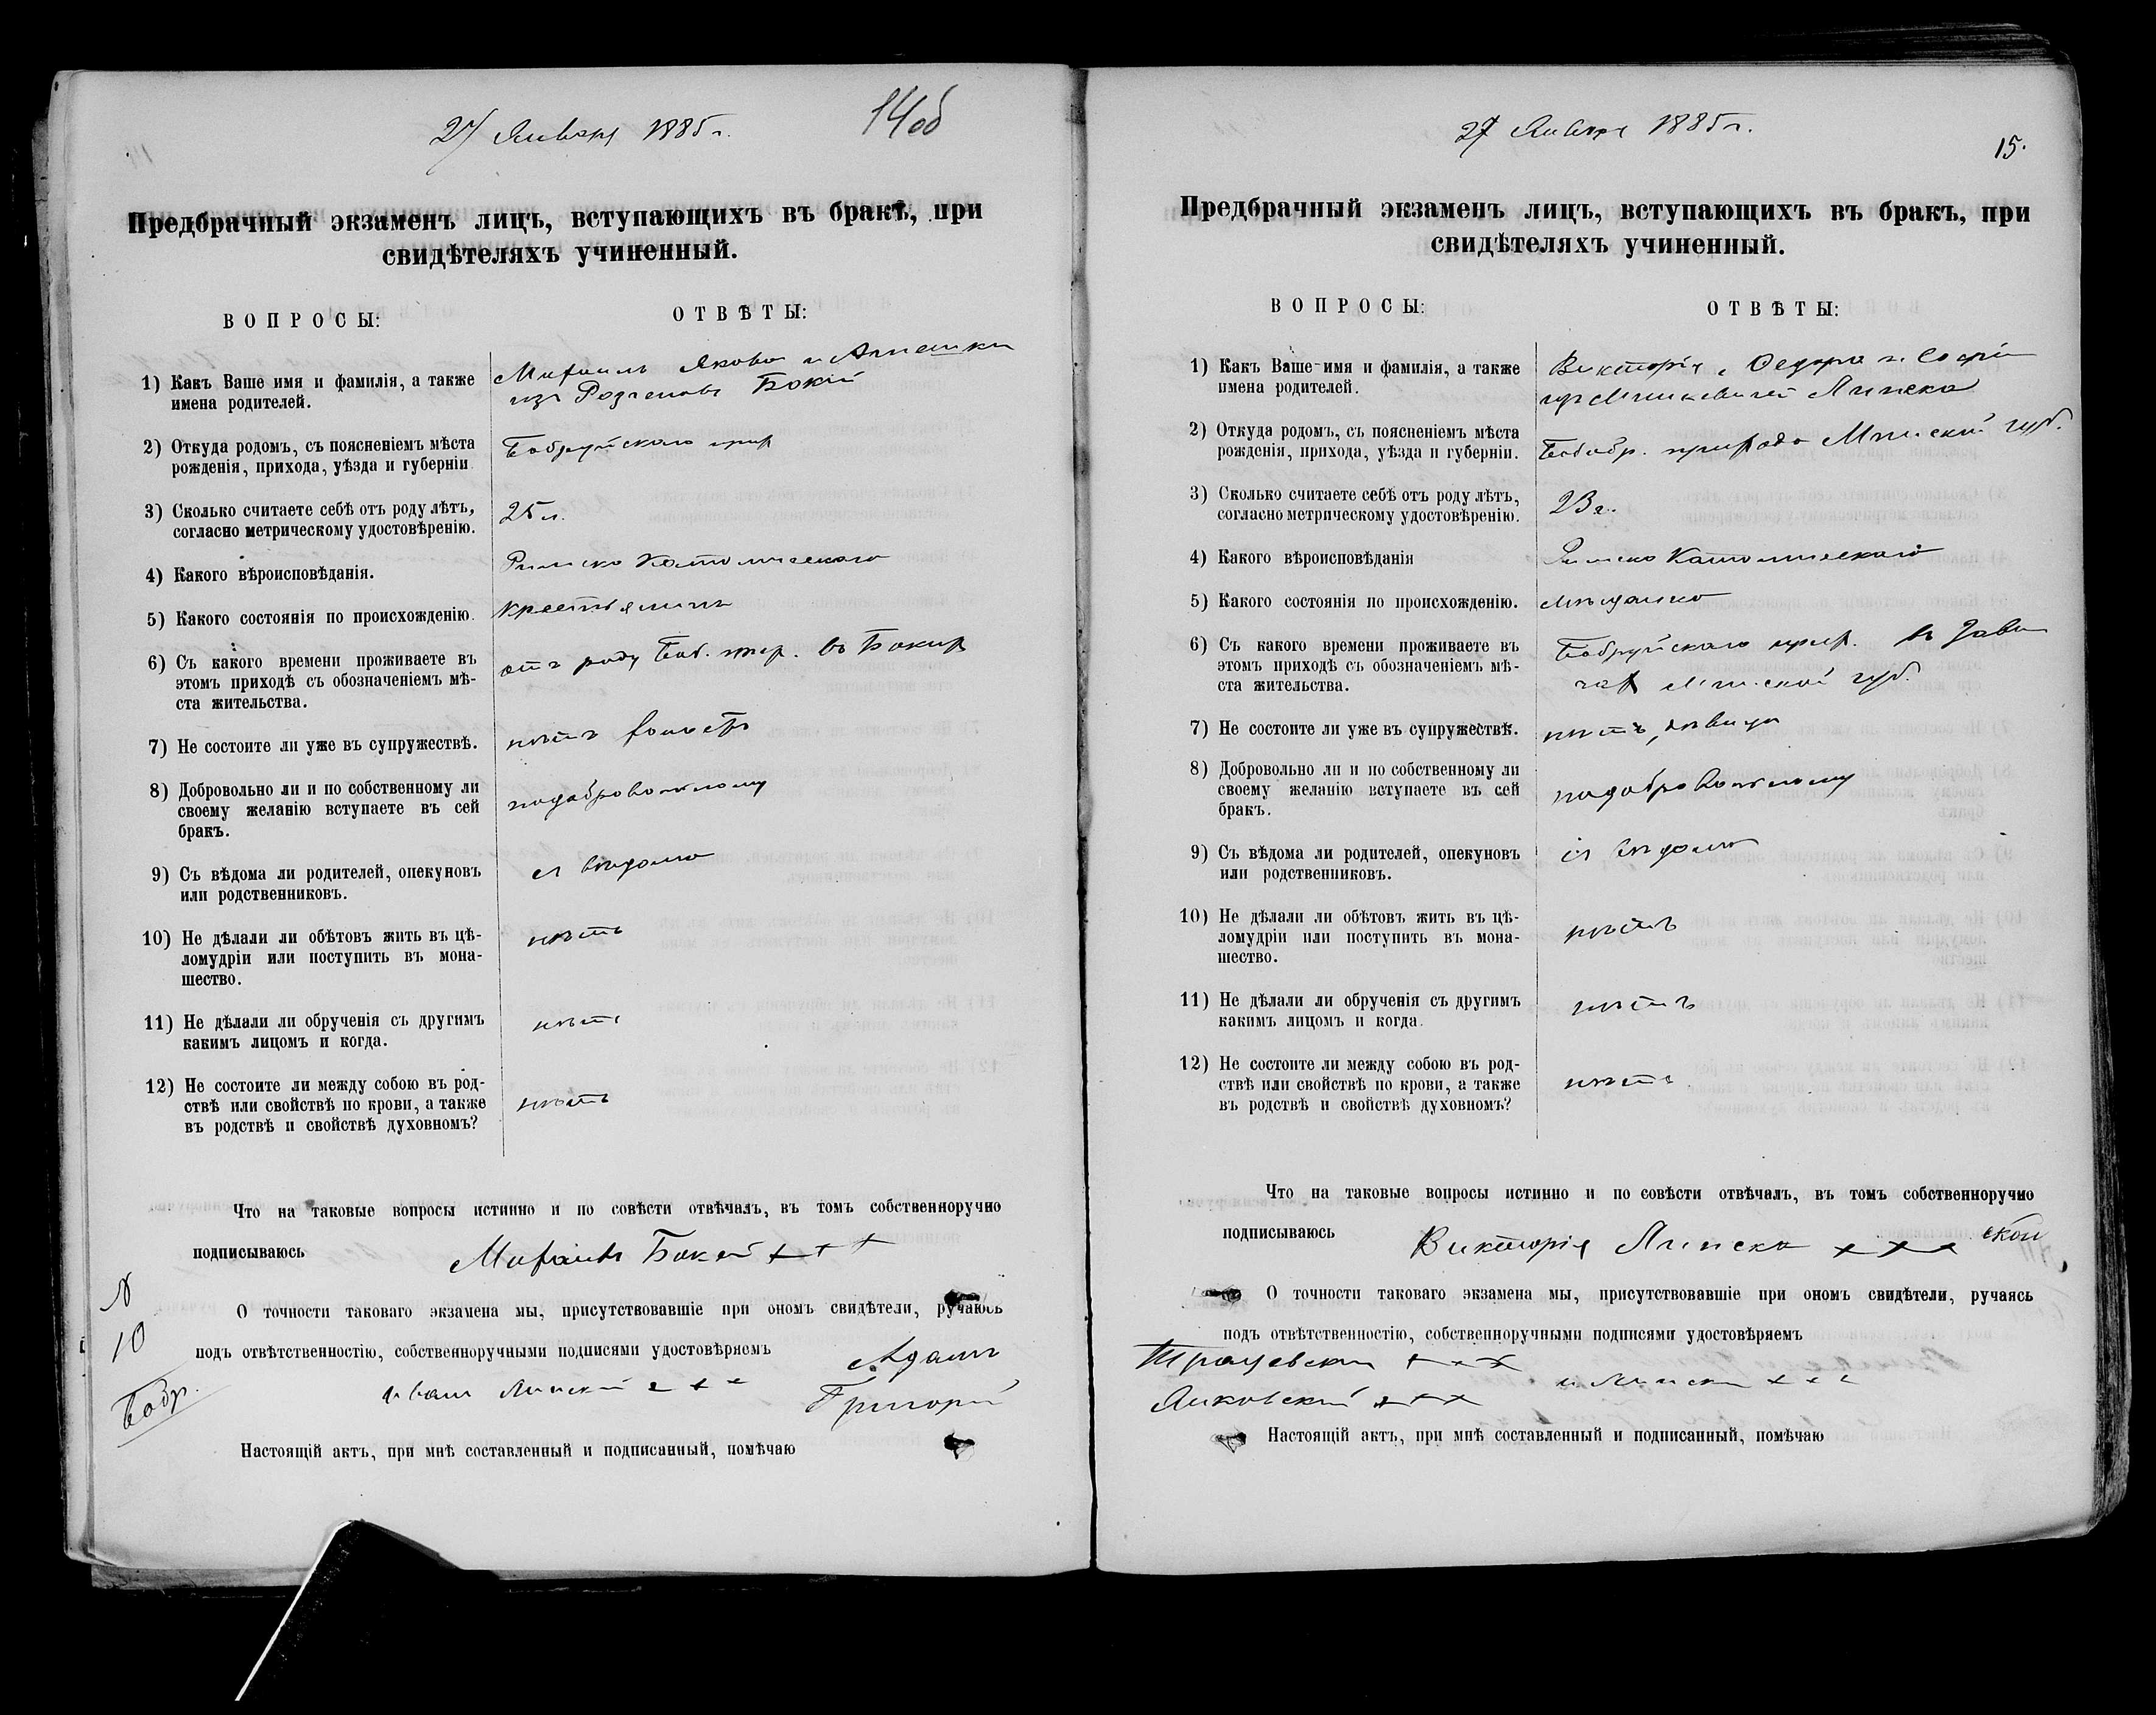 27 Января 1885 г.
14об
Предбрачный экзаменъ лицъ, вступающихъ въ бракъ, при
свидѣтеляхъ учиненный.
ВОПРОСЫ:
ОТВѢТЫ:
1) Какъ Ваше имя и фамилія, а также
имена родителей.
Михаилъ Якова и Агнешки
изъ Бокій
2) Откуда родомъ, съ поясненіемъ мѣста
рожденія, прихода, уѣзда и губерніи
Бобруйскаго прих
3) Сколько считаете себѣ отъ роду лѣтъ,
согласно метрическому удостовѣренію.
25 л.
4) Какого вѣроисповѣданія.
Римско Католическаго
5) Какого состоянія по происхожденію.
крестьянинъ
6) Съ какого времени проживаете въ
этомъ приходѣ съ обозначеніемъ мѣ-
ста жительства.
отъ роду Боб. въ
7) Не состоите ли уже въ супружествѣ.
нѣтъ холостъ
8) Добровольно ли и по собственному ли
своему желанію вступаете въ сей
бракъ.
подобровольному
9) Съ вѣдома ли родителей, опекуновъ
или родственниковъ.
съ вѣдома
10) Не дѣлали ли обѣтовъ жить въ цѣ-
ломудріи или поступить въ мона-
шество.
нѣтъ
11) Не дѣлали ли обрученія съ другимъ
какимъ лицомъ и когда.
нѣтъ
12) Не состоите ли между собою въ род-
ствѣ или свойствѣ по крови, а также
въ родствѣ и свойствѣ духовномъ?
нѣтъ
Что на таковые вопросы истинно и по совѣсти отвѣчалъ, въ томъ собственноручно
подписываюсь Михаилъ Бокій + + +
№
10
Бобр.
О точности таковаго экзамена мы, присутствовавшіе при ономъ свидѣтели, ручаюсь
подъ отвѣтственностію, собственноручными подписями удостовѣряемъ Адамъ
Иванъ Липскій + + + Григорій
Настоящій актъ, при мнѣ составленный и подписанный, помѣчаю
27 Января 1885 г.
15.
Предбрачный экзаменъ лицъ, вступающихъ въ бракъ, при
свидѣтеляхъ учиненный.
ВОПРОСЫ:
ОТВѢТЫ:
1) Какъ Ваше имя и фамилія, а также
имена родителей.
Викторія, Федора и Софіи
Липска
2) Откуда родомъ, съ поясненіемъ мѣста
рожденія, прихода, уѣзда и губерніи.
прихода Минской губ.
3) Сколько считаете себѣ отъ роду лѣтъ,
согласно метрическому удостовѣренію.
23 г.
4) Какого вѣроисповѣданія
Римско Католическаго
5) Какого состоянія по происхожденію.
мѣщанка
6) Съ какого времени проживаете въ
этомъ приходѣ съ обозначеніемъ мѣ-
ста жительства.
Бобруйскаго прих. въ
Минской губ.
7) Не состоите ли уже въ супружествѣ.
нѣтъ, дѣвица
8) Добровольно ли и по собственному ли
своему желанію вступаете въ сей
бракъ.
подобровольному
9) Съ вѣдома ли родителей, опекуновъ
или родственниковъ.
съ вѣдома
10) Не дѣлали ли обѣтовъ жить въ цѣ-
ломудріи или поступить въ мона-
шество.
нѣтъ
11) Не дѣлали ли обрученія съ другимъ
какимъ лицомъ и когда.
нѣтъ
12) Не состоите ли между собою въ род-
ствѣ или свойствѣ по крови, а также
въ родствѣ и свойствѣ духовномъ?
нѣтъ
Что на таковые вопросы истинно и по совѣсти отвѣчалъ, въ томъ собственноручно
подписываюсь Викторія Липска + + +
О точности таковаго экзамена мы, присутствовавшіе при ономъ свидѣтели, ручаясь
подъ отвѣтственностію, собственноручными подписями удостовѣряемъ
+ + +
Янковскій + + + и Липски + + +
Настоящій актъ, при мнѣ составленный и подписанный, помѣчаю